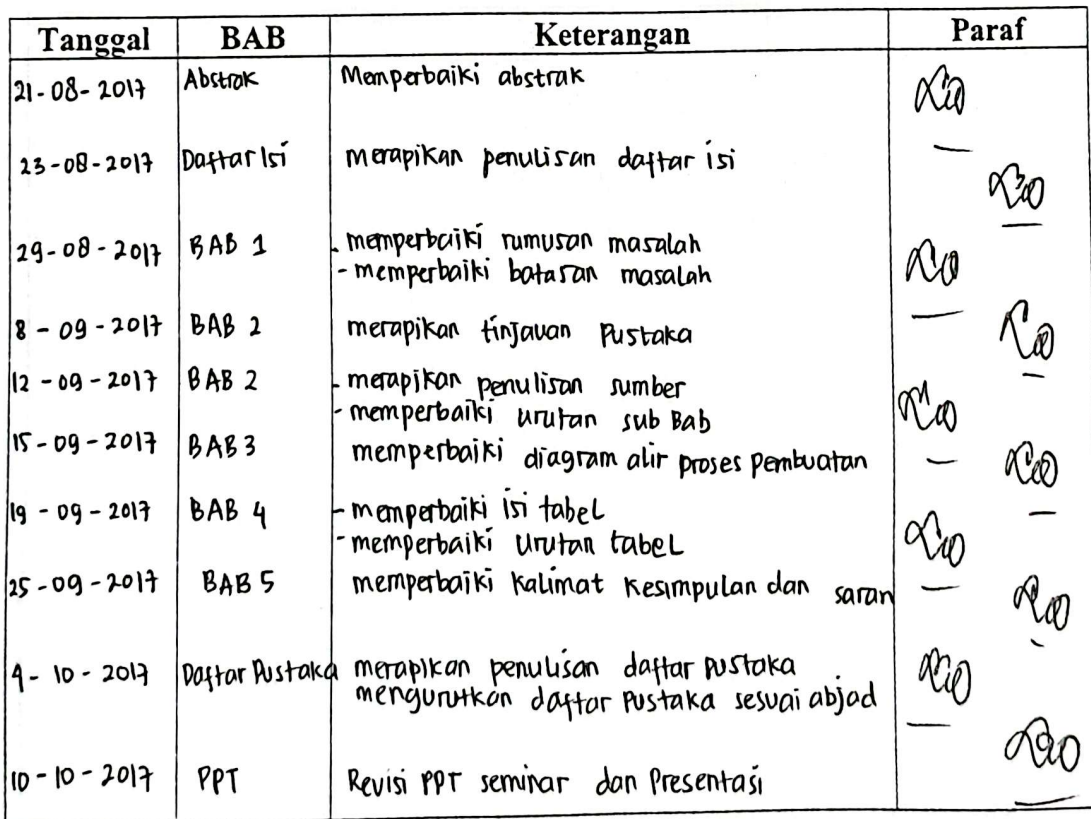 Tanggal BAB Keterangan Paraf
21-08-2017 Abstrak Memperbaiki abstrak
23-08-2017 Daftar Isi merapikan penulisan daftar isi
29-08-2017 BAB 1 - memperbaiki rumusan masalah
- memperbaiki batasan masalah
8-09-2017 BAB 2 merapikan tinjauan Pustaka
12-09-2017 BAB 2 - merapikan penulisan sumber
- memperbaiki urutan sub Bab
15-09-2017 BAB 3 memperbaiki diagram alir proses pembuatan
19-09-2017 BAB 4 - memperbaiki isi tabel
- memperbaiki urutan tabel
25-09-2017 BAB 5 memperbaiki kalimat kesimpulan dan saran
4-10-2017 Daftar Pustaka merapikan penulisan daftar pustaka
mengurutkan daftar Pustaka sesuai abjad
10-10-2017 PPT Revisi PPT seminar dan Presentasi